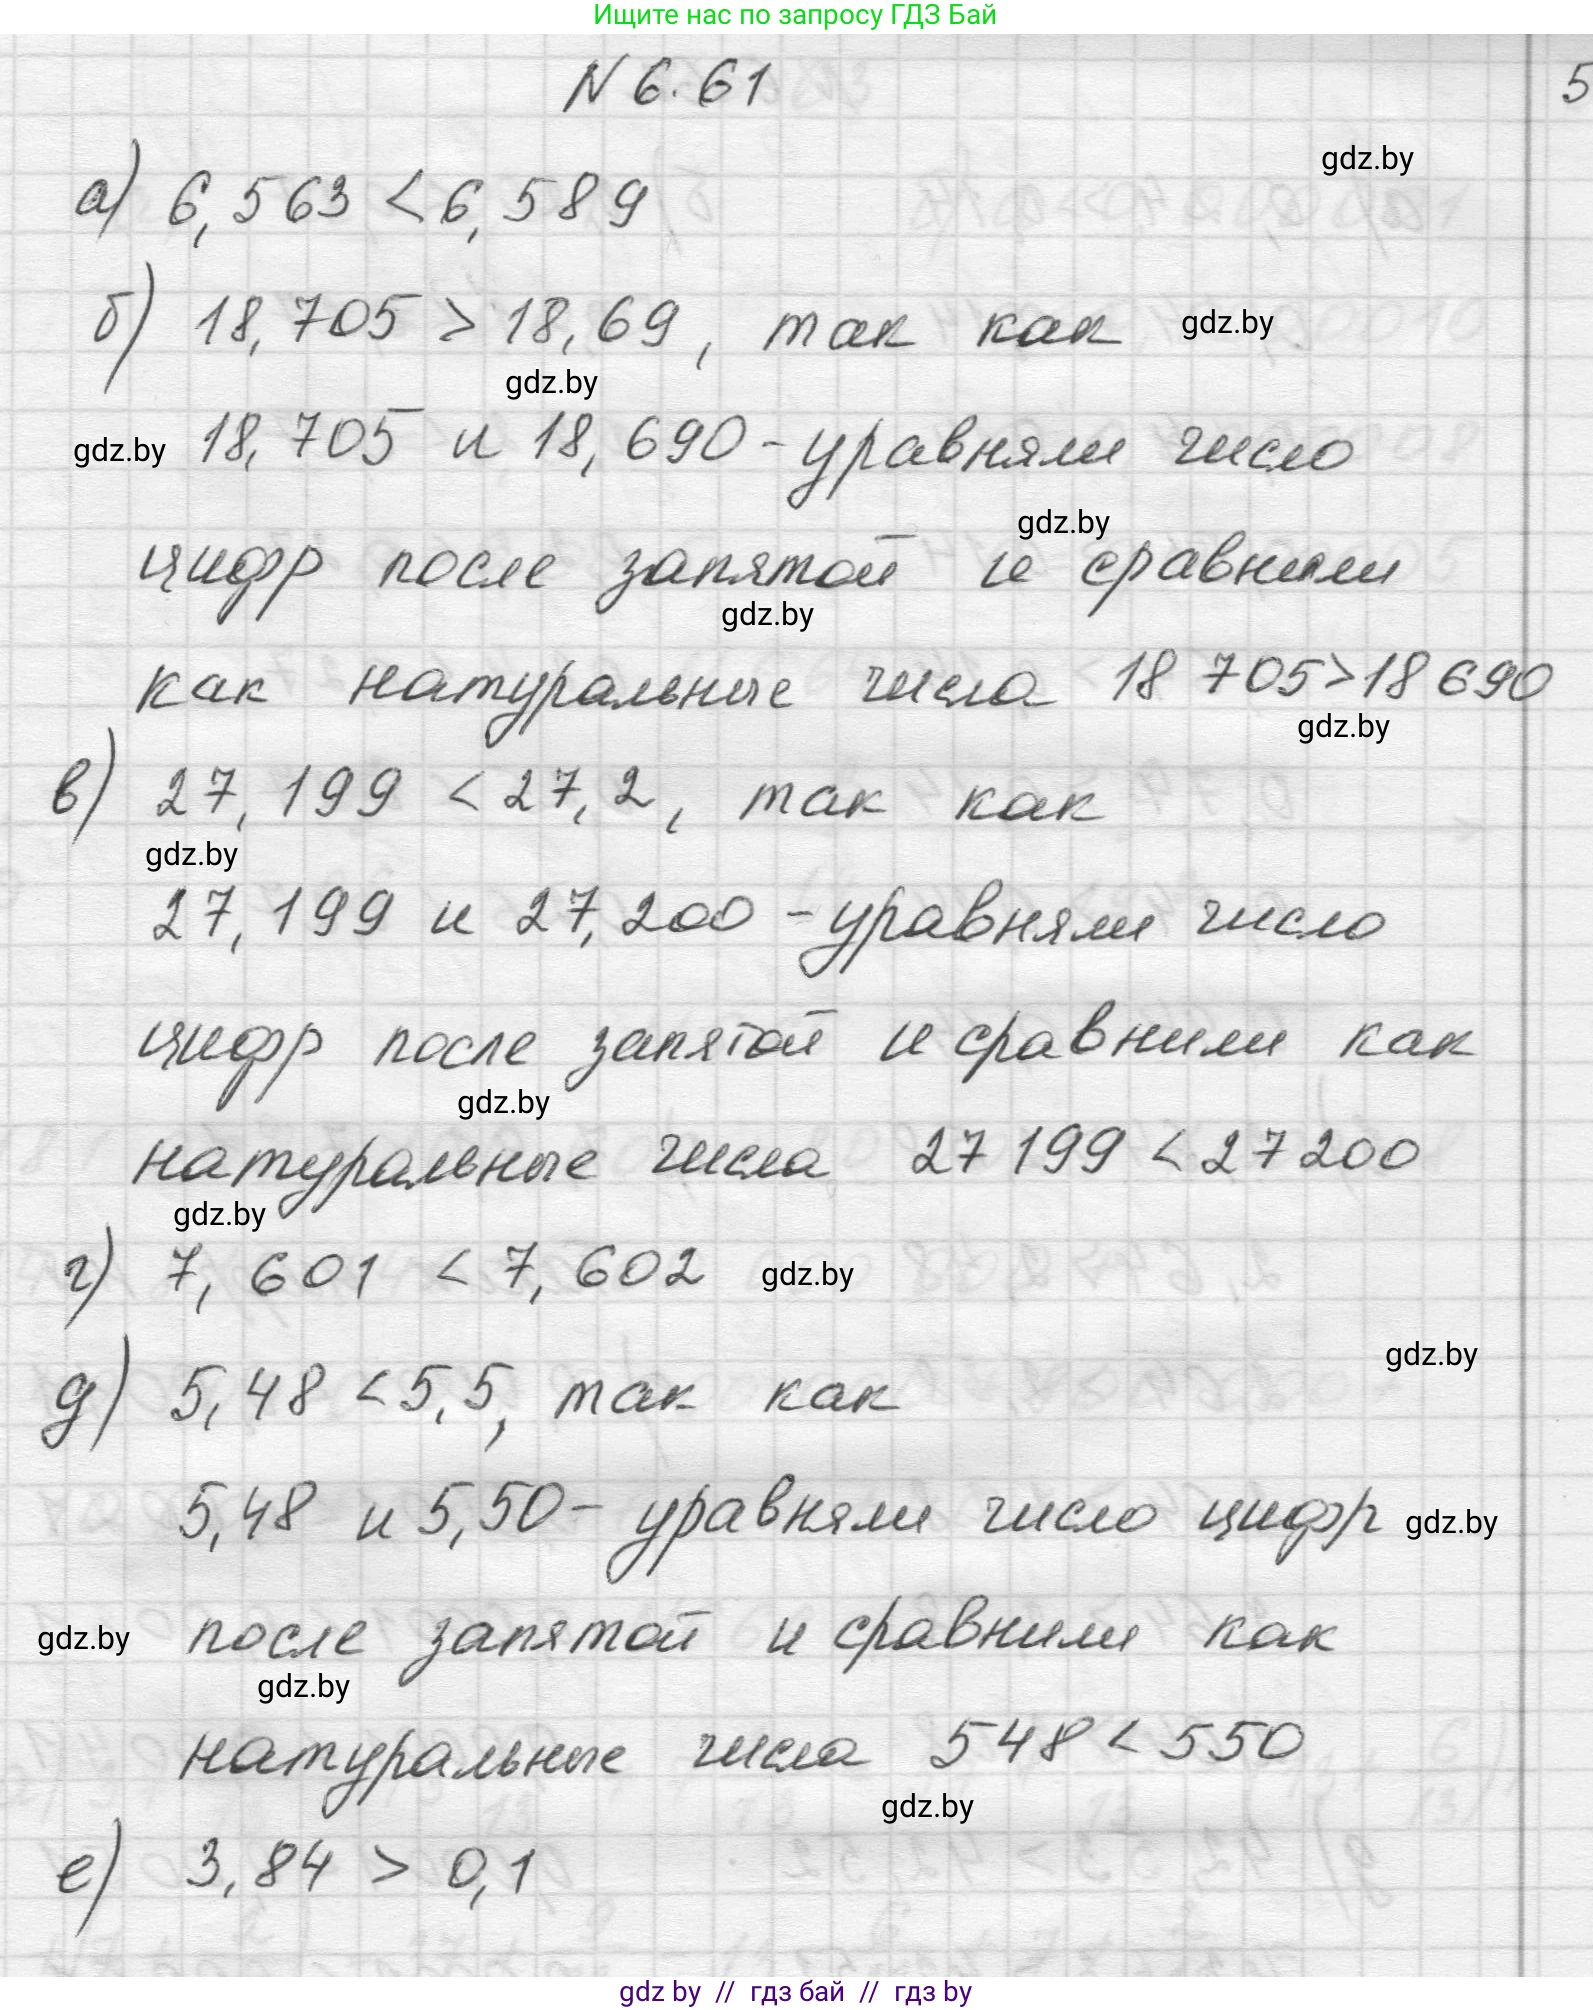 Ищите нас по запросу ГДЗ Бай
N 6.61
5
gdz.by
а) 6,563 < 6,589
б) 18,705 > 18,69, так как gdz.by
gdz.by
gdz.by 18,705 и 18,690 - уравняли число
gdz.by
цифр после запятой и сравнили
gdz.by
как натуральные числа 18 705 > 18 690
gdz.by
в) 27,199 < 27,2, так как
gdz.by
27,199 и 27,200 - уравняли число
цифр после запятой и сравнили как
gdz.by
натуральные числа 27 199 < 27 200
gdz.by
г) 7,601 < 7,602 gdz.by
gdz.by
д) 5,48 < 5,5, так как
5,48 и 5,50 - уравняли число цифр gdz.by
gdz.by после запятой и сравнили как
gdz.by
натуральные числа 548 < 550
gdz.by
е) 3,84 > 0,1
gdz by // гдз бай // гдз by